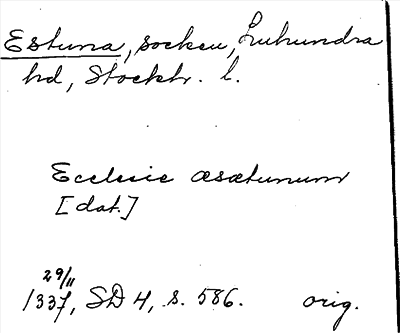 Estuna, socken, Luhundra
hd, Stockh. l.
Ecclesie æsætunum
[dat.]
29/11
1337, SD 4, s. 586. orig.